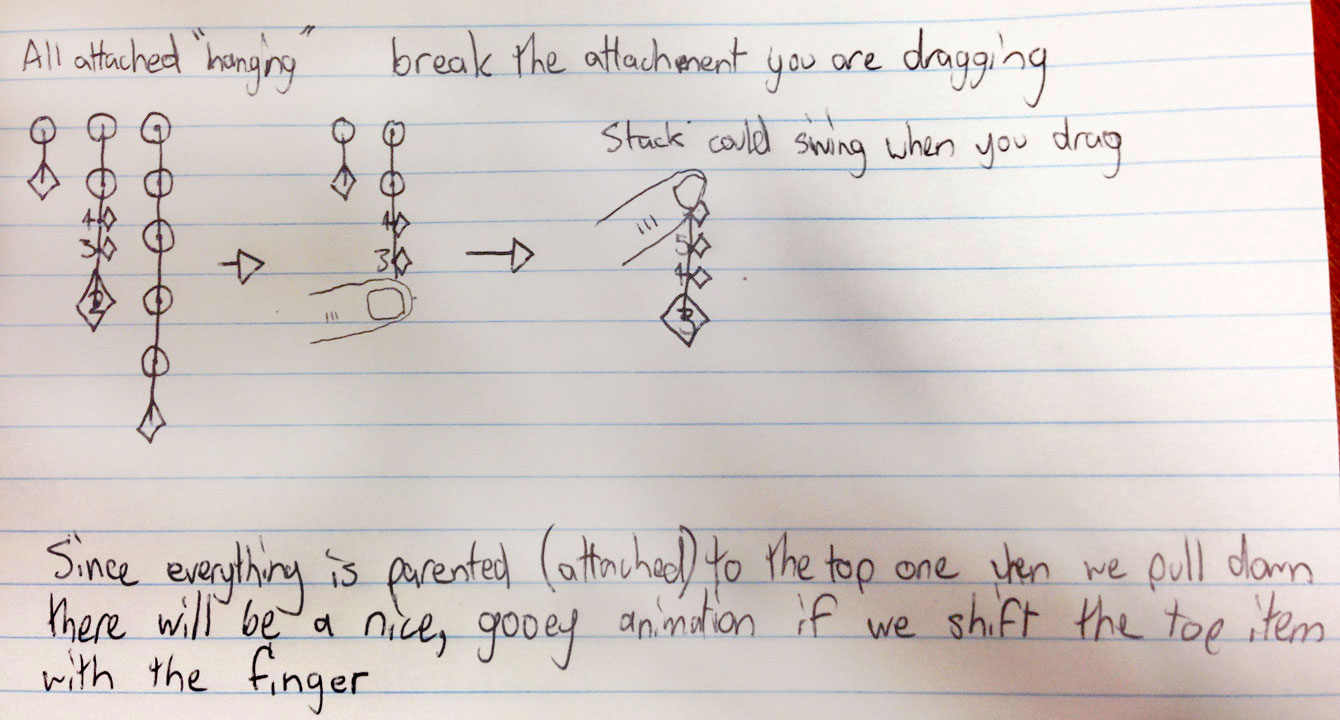 All attached "hanging"
break the attachment you are dragging
4
3
2
4
3
Stack could swing when you drag
5
4
3
Since everything is parented (attached) to the top one when we pull down
there will be a nice, gooey animation if we shift the top item
with the finger